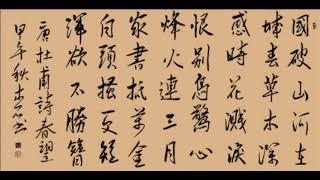 國破山河在
城春草木深
感時花濺淚
恨別鳥驚心
烽火連三月
家書抵萬金
白頭搔更短
渾欲不勝簪
唐杜甫詩春望
甲午秋書